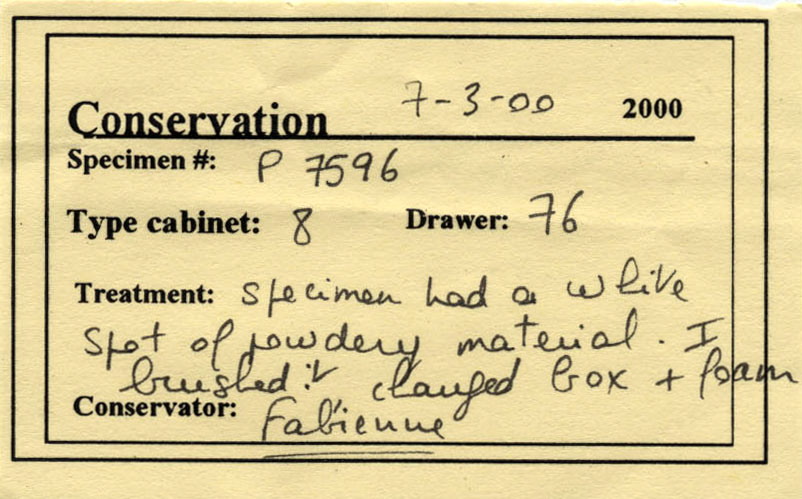 Conservation 7-3-00 2000
Specimen #: P 7596
Type cabinet: 8 Drawer: 76
Treatment: specimen had a white
spot of powdery material. I
brushed it changed box + foam
Conservator: Fabienne